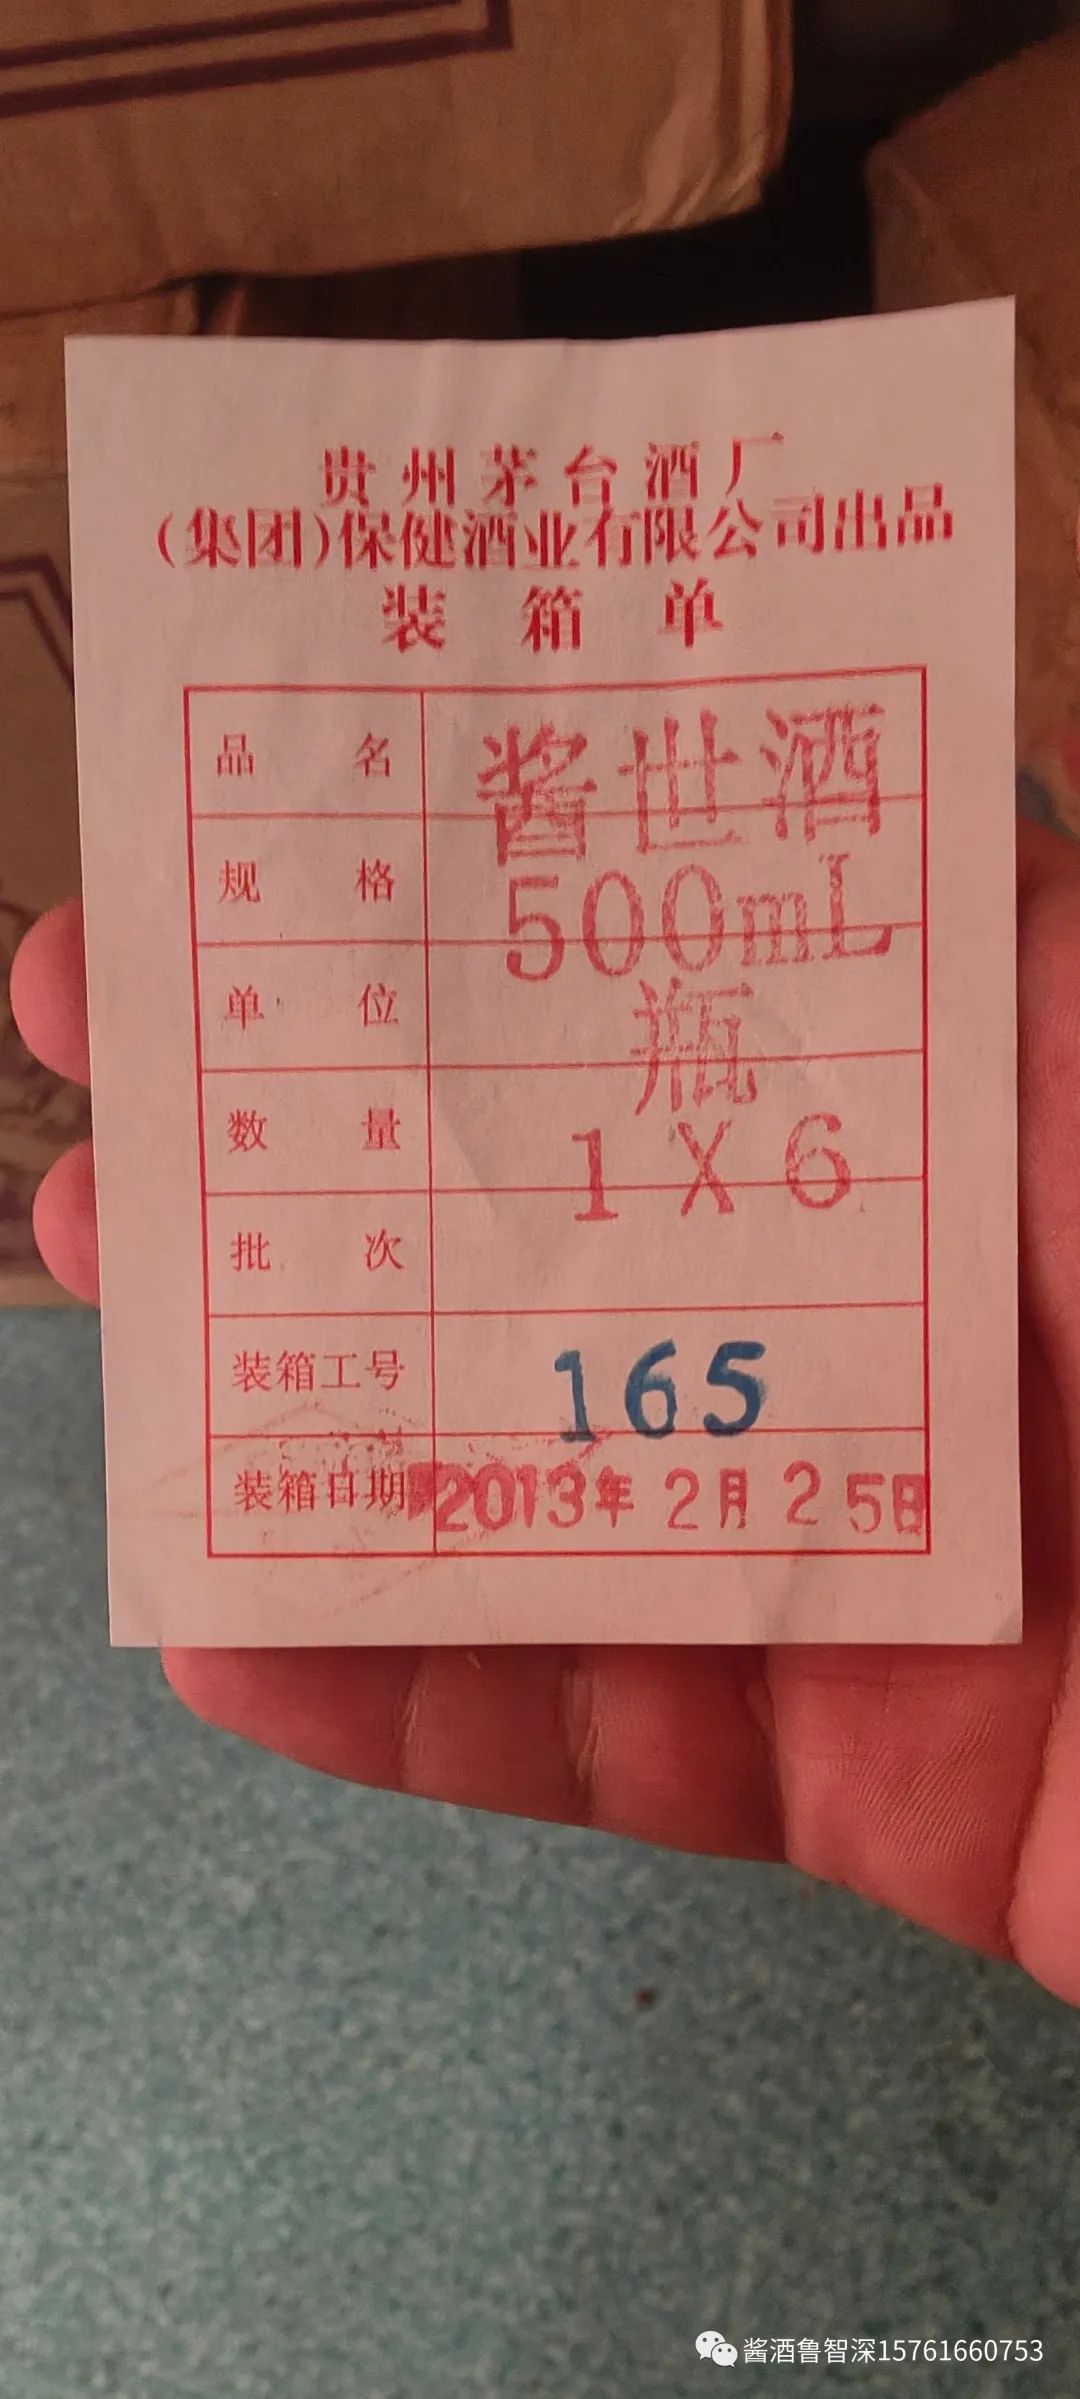 贵州茅台酒厂
(集团)保健酒业有限公司出品
装箱单
品名 酱世酒
规格 500mL
单位 瓶
数量 1X6
批次
装箱工号 165
装箱日期 2013年2月25日
酱酒鲁智深15761660753